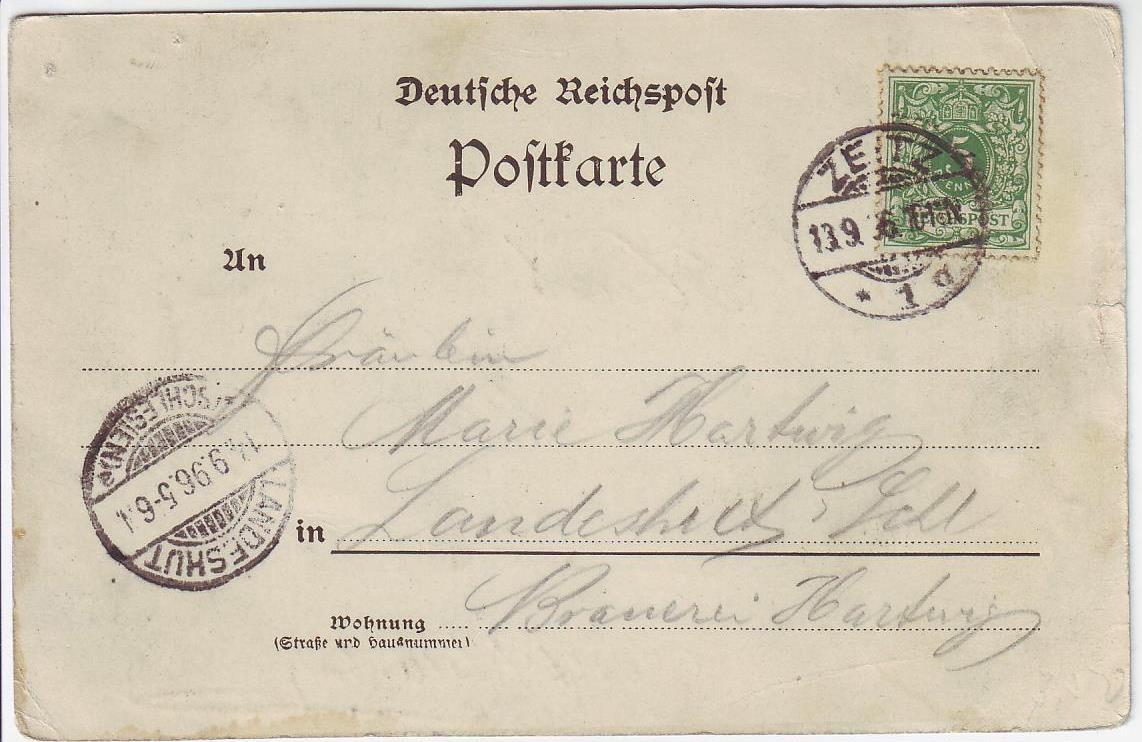 Deutsche Reichspost
Postkarte
5
REICHSPOST
ZEITZ
13.9.96.
* 1 d
An
Fräulein
Marie Hartwig
in Landeshut, Schl
Wohnung Brauerei Hartwig
(Straße und Hausnummer)
LANDESHUT
14.9.96.5-6
(SCHLESIEN)